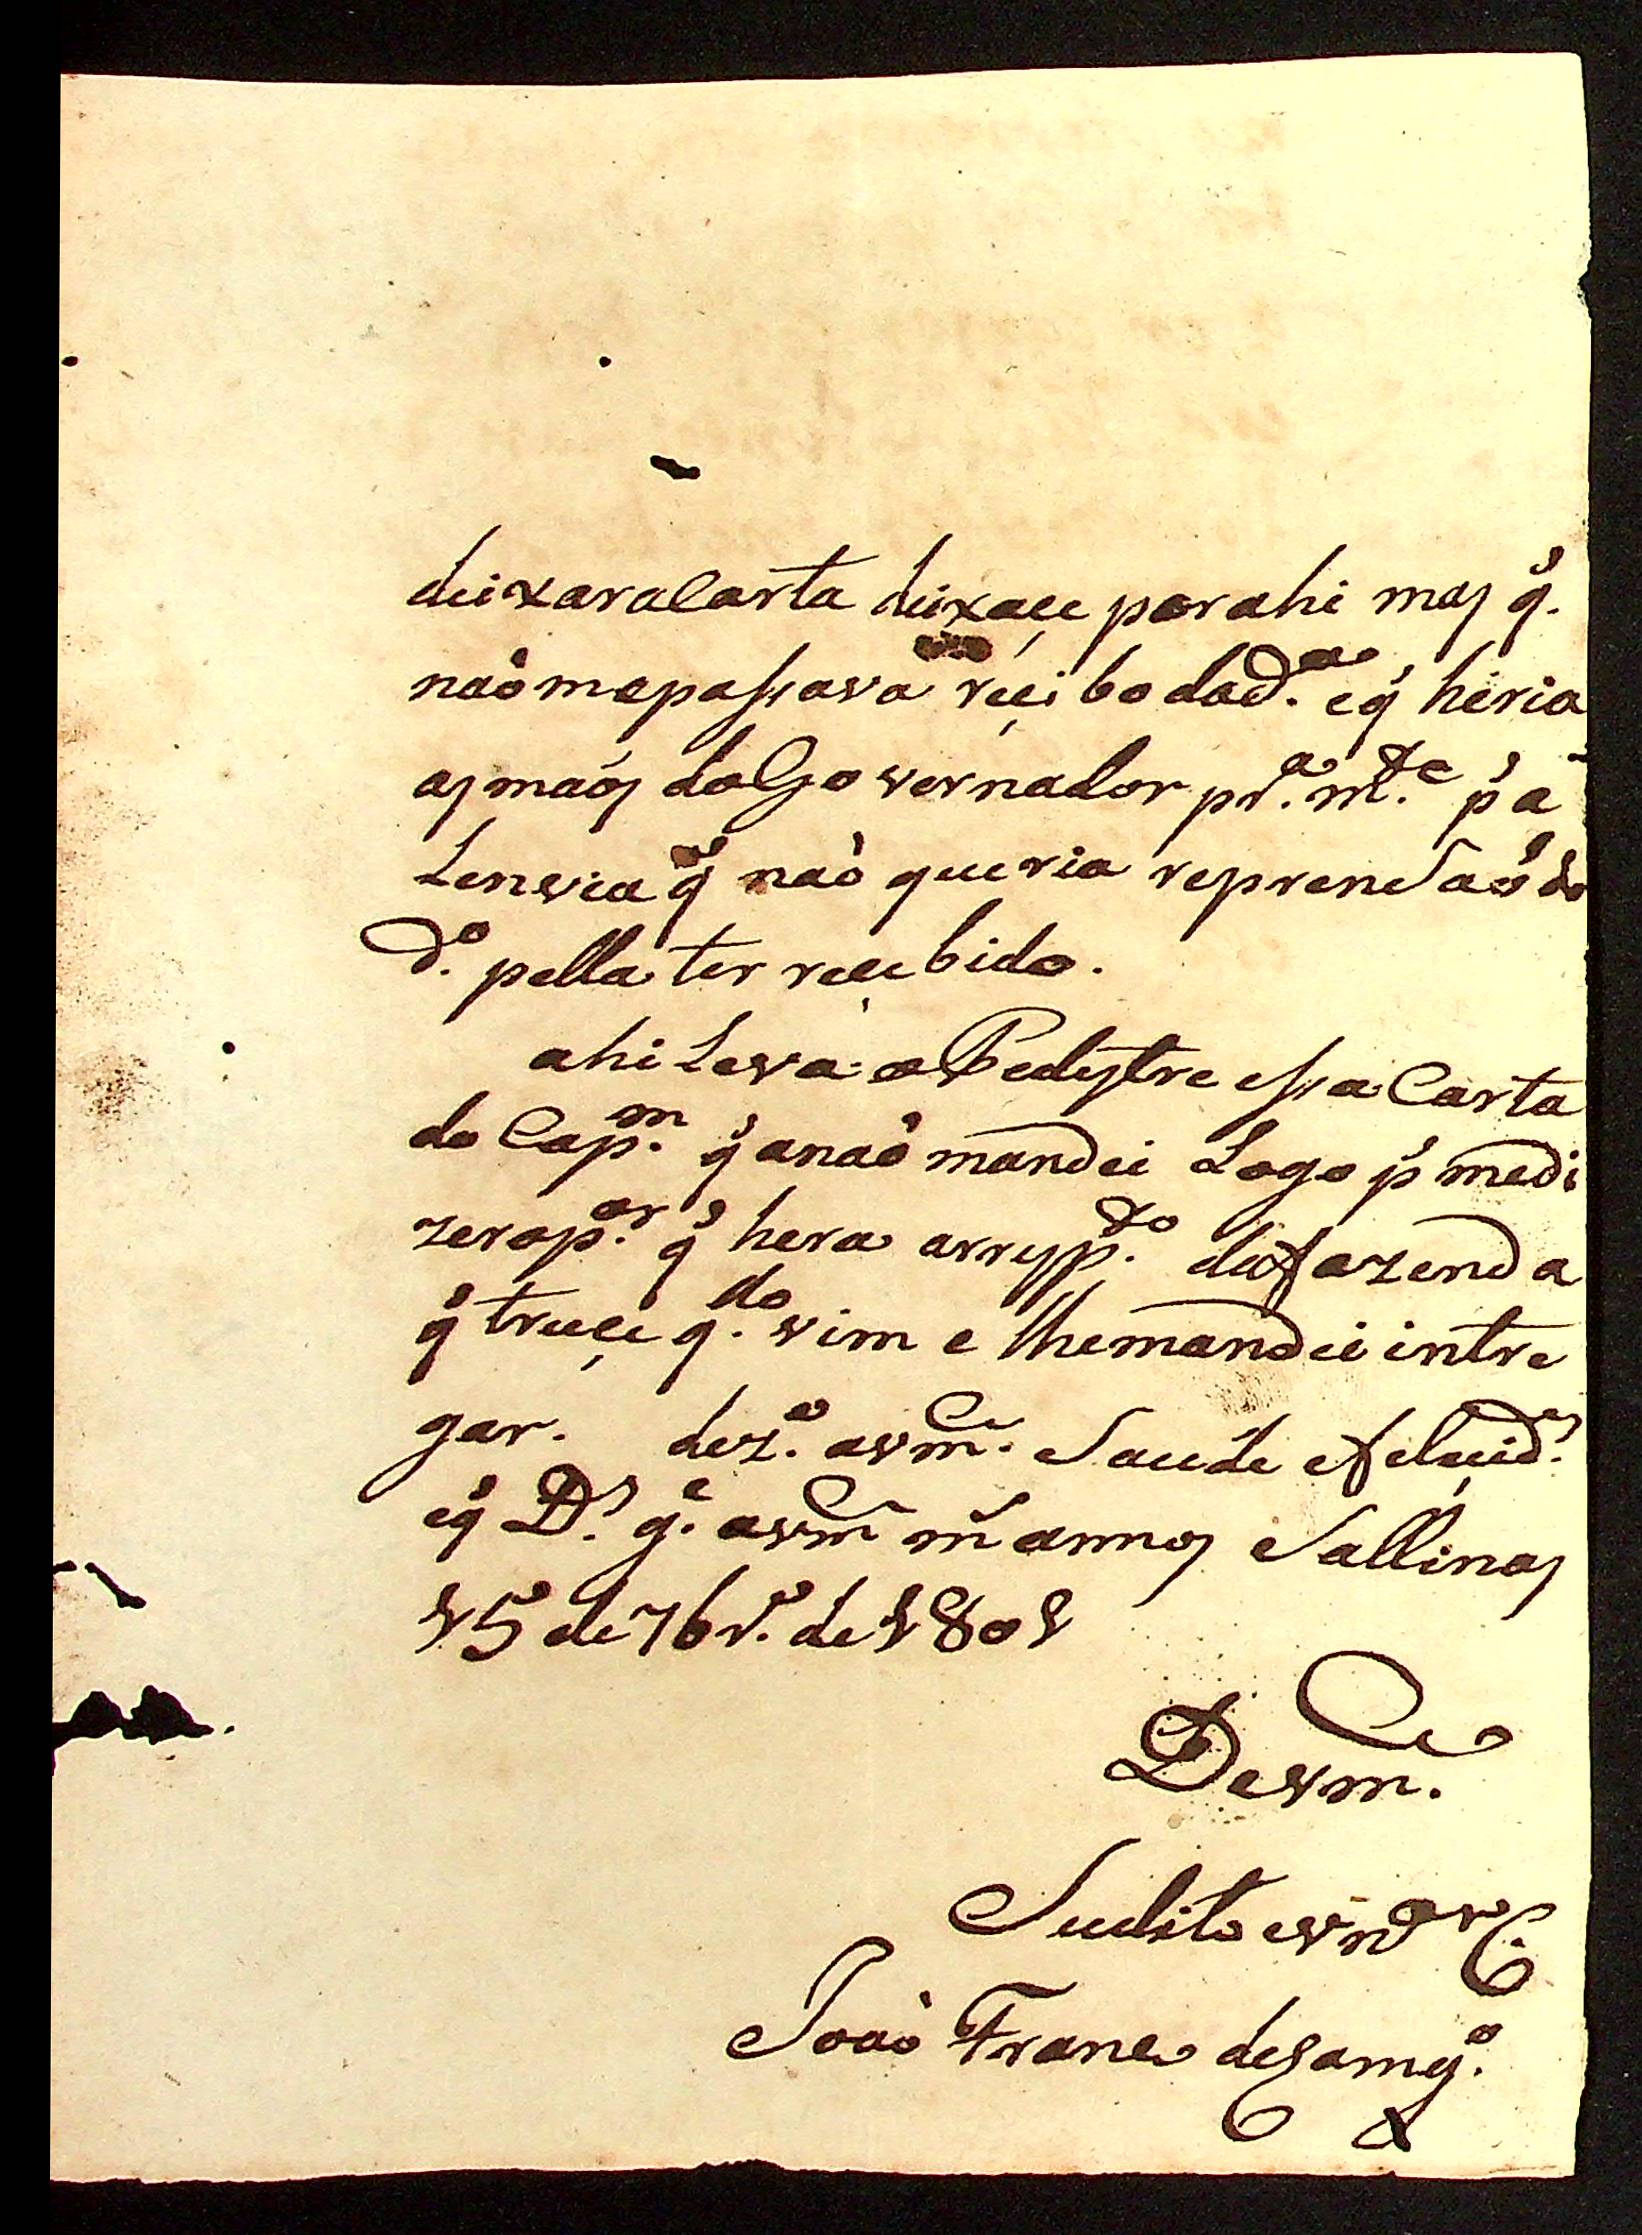 deixar a Carta deixaçe por ahi mas q̃.
naõ me passava reçibo da d.ª e q̃ hé ria
as maõs do Governador pr.ª m.te p̃ a
Lenvia q̃ naõ queria reprensaõ do
d.º pella ter reçebido.
ahi Leva o Pedystre essa Carta
do Cap.m q̃ a naõ mandei Logo p̃ me di
zer o p.or q̃ hera a rresp.to da fazenda
q̃ truçe q.do vim e lhe mandei intre
gar. dez.º a vm.ce Saude e feliçid.es
e q̃ D.s g.e a vm.ce m.s annos Sallinas
15 de 7br.º de 1801
De vm.ce
Sudito e vn.dor
João Franco de Camg.º